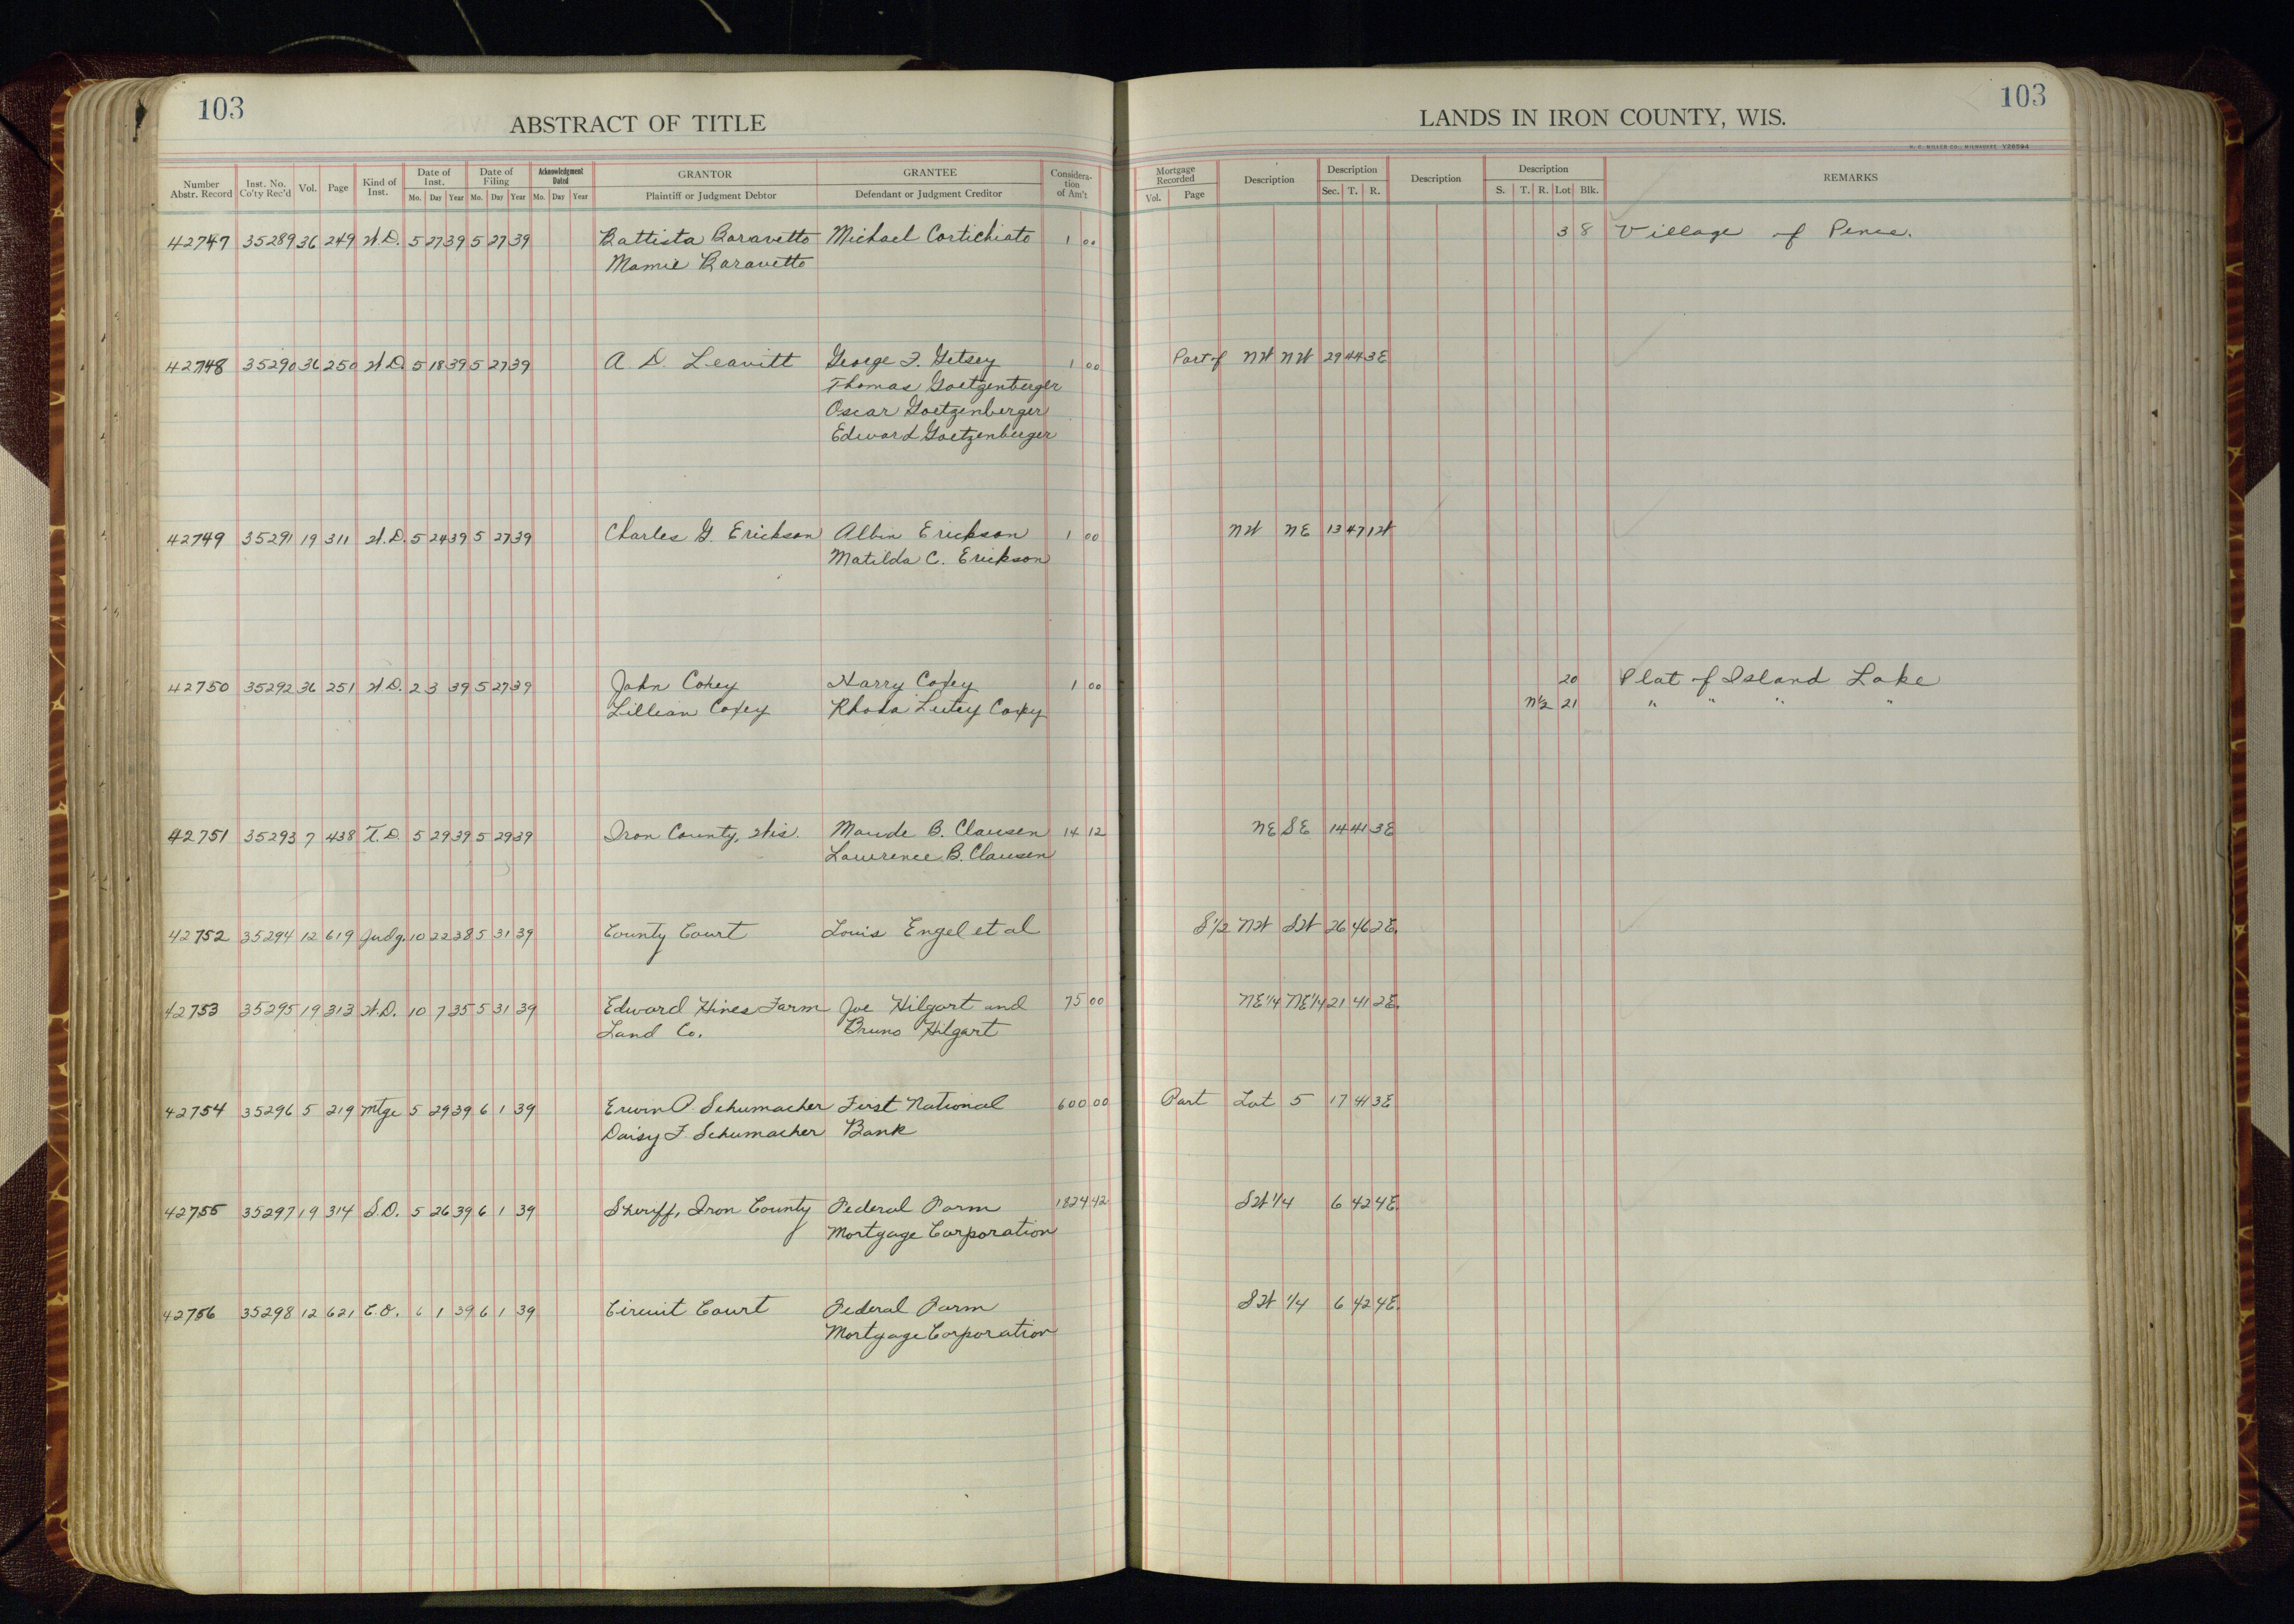 103
ABSTRACT OF TITLE
LANDS IN IRON COUNTY, WIS.
103
H. C. MILLER CO., MILWAUKEE
Number Abstr. Record Inst. No. Co'ty Rec'd Vol. Page Kind of Inst. Date of Inst. Mo. Day Year Date of Filing Mo. Day Year Acknowledgment Dated Mo. Day Year GRANTOR Plaintiff or Judgment Debtor GRANTEE Defendant or Judgment Creditor Considera-tion of Am't Mortgage Recorded Vol. Page Description Description Sec. T. R. Description Description S. T. R. Lot Blk. REMARKS
42747 35289 36 249 W.D. 5 27 39 5 27 39 Battista Baravetto Michael Cortichiato 1 00 3 8 Village of Pence.
Mamie Baravetto
42748 35290 36 250 W.D. 5 18 39 5 27 39 A. D. Leavitt George F. Getsey 1 00 Part of NW NW 29 44 3E
Thomas Goetzenberger
Oscar Goetzenberger
Edward Goetzenberger
42749 35291 19 311 W.D. 5 24 39 5 27 39 Charles G Erickson Albin Erickson 1 00 NW NE 13 47 1W
Matilda C. Erickson
42750 35292 36 251 W.D. 2 3 39 5 27 39 John Coxey Harry Coxey 1 00 20 Plat of Island Lake
Lillian Coxey Rhoda Lutey Coxey N½ 21 " " " "
42751 35293 7 438 T.D. 5 29 39 5 29 39 Iron County, Wis. Maude B. Clausen 14 12 NE SE 14 41 3E
Lawrence B. Clausen
42752 35294 12 619 Judg. 10 22 38 5 31 39 County Court Louis Engel et al S 1/2 NW SW 26 46 2E.
42753 35295 19 313 W.D. 10 7 35 5 31 39 Edward Hines Farm Joe Hilgart and 75 00 NE 1/4 NE 1/4 21 41 2E.
Land Co. Bruno Hilgart
42754 35296 5 219 Mtge 5 29 39 6 1 39 Erwin P Schumacher First National 600 00 Part Lot 5 17 41 3E
Daisy F. Schumacher Bank
42755 35297 19 314 S.D. 5 26 39 6 1 39 Sheriff, Iron County Federal Farm 1824 42 SW 1/4 6 42 4E.
Mortgage Corporation
42756 35298 12 621 C.O. 6 1 39 6 1 39 Circuit Court Federal Farm SW 1/4 6 42 4E.
Mortgage Corporation